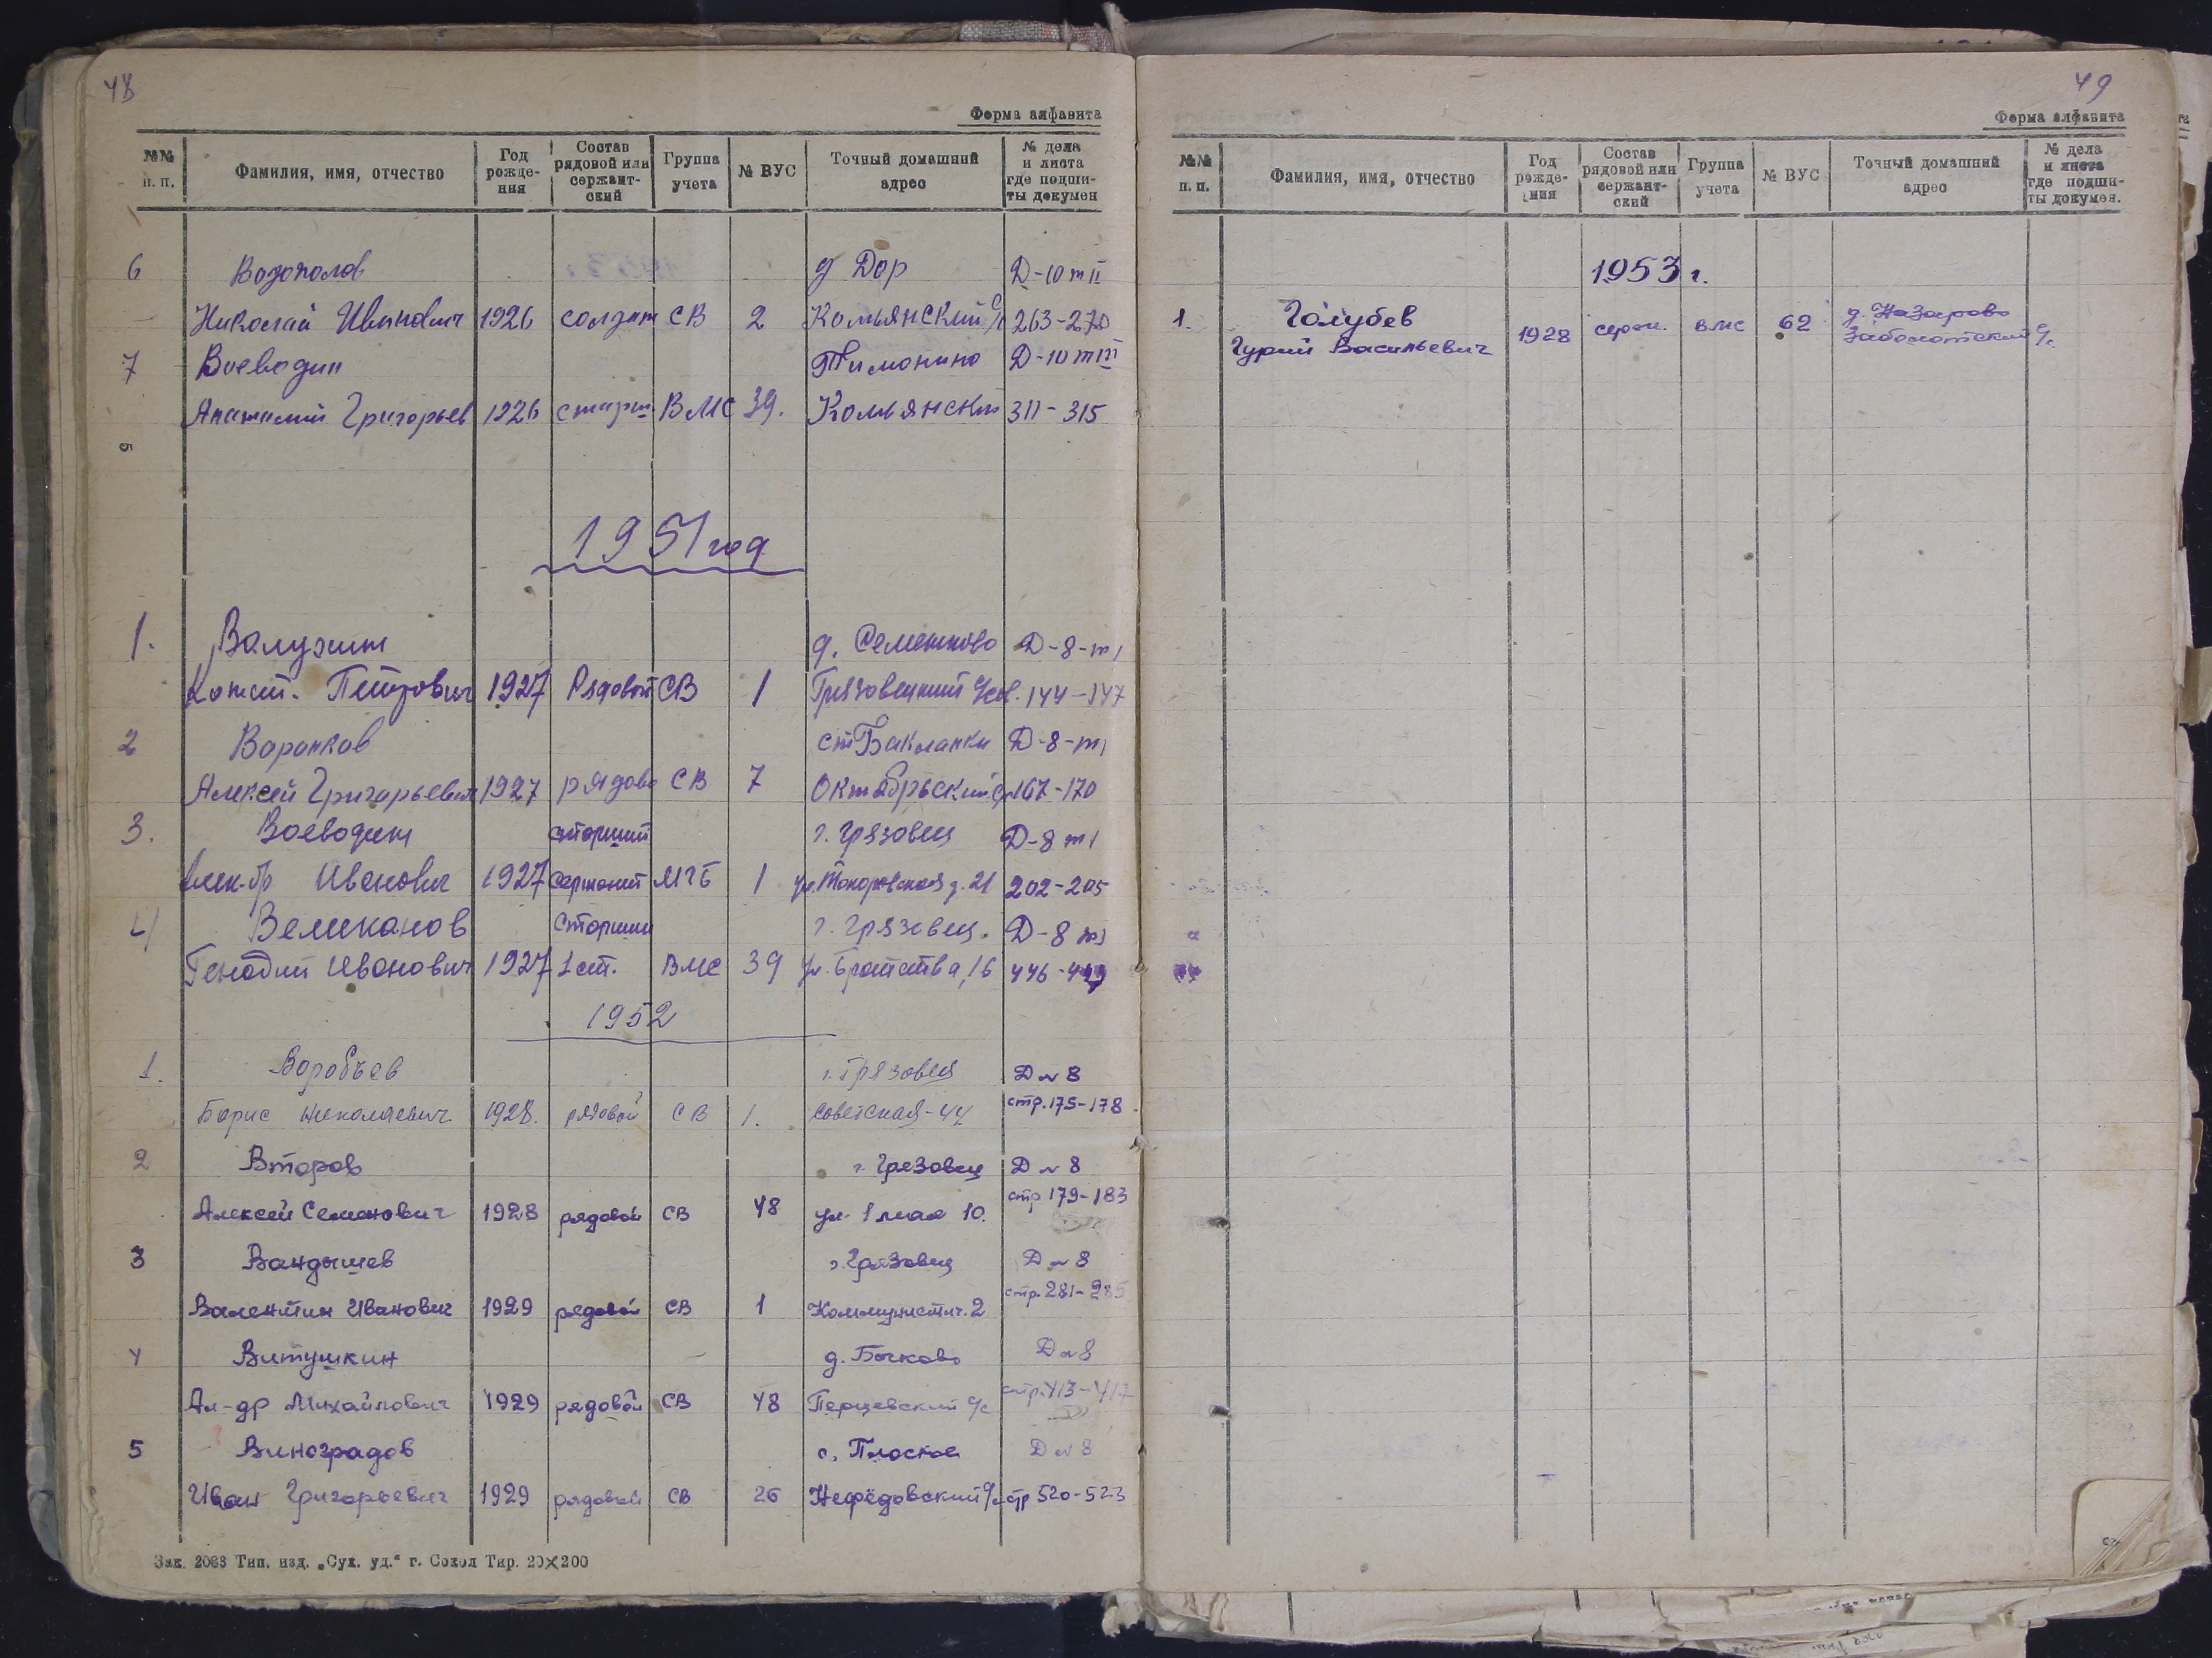 48
Форма алфавита
№№ п. п. Фамилия, имя, отчество Год рожде- ния Состав рядовой или сержант- ский Группа учета № ВУС Точный домашний адрес № дела и листа где подши- ты докумен
6 Водополов д Дор Д-10 т II
Николай Иванович 1926 солдат СВ 2 Комьянский с/с 263-270
7 Воеводин Тимонино Д-10 т III
Анатолий Григорьев 1926 старш ВМС 39. Комьянский 311-315
1951 год
1. Валухин д. Семенково Д-8-т1
Конст. Петрович 1927 Рядовой СВ 1 Грязовецкий 144-147
2 Воронков ст Бакланки Д-8-т1
Алексей Григорьевич 1927 рядово СВ 7 Октябрьский с/с 167-170
3. Воеводин старший г. Грязовец Д-8 т1
Алек-др Иванович 1927 сержант МГБ 1 д. 21 202-205
4 Великанов Старшин г. Грязовец. Д-8 т1
Генадий Иванович 1927 1 ст. ВМС 39 ул. Братства, 16 446-449
1952
1. Воробьев г. Грязовец Д № 8
Борис Николаевич 1928. рядовой СВ 1. Советская-44 стр. 175-178
2 Второв г. Грязовец Д № 8
Алексей Семенович 1928 рядовой СВ 48 ул. 1 мая 10. стр 179-183
3 Вандышев г. Грязовец Д № 8
Валентин Иванович 1929 рядовой СВ 1 Коммунистич. 2 стр. 281-285
4 Витушкин д. Бочково Д № 8
Ал-др Михайлович 1929 рядовой СВ 48 Перцевский с/с стр. 413-417
5 Виноградов с. Плоское Д № 8
Иван Григорьевич 1929 рядовой СВ 26 Нефёдовский с/с стр 520-523
Зак. 2086 Тип. изд. „Сух. уд.“ г. Сокол Тир. 20×200
49
Форма алфавита
№№ п. п. Фамилия, имя, отчество Год рожде- ния Состав рядовой или сержант- ский Группа учета № ВУС Точный домашний адрес № дела и листа где подши- ты докумен.
1953 г.
1. Голубев д. Назарово
Гурий Васильевич 1928 серж. ВМС 62 Заболотский с/с